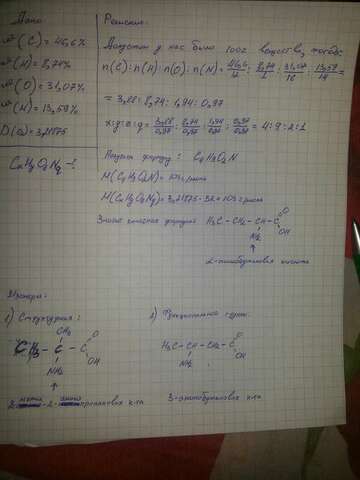 Дано:
ω(C) = 46,6%
ω(H) = 8,74%
ω(O) = 31,07%
ω(N) = 13,59%
D(O₂) = 3,21875
CₓHᵧO₂N₉ - ?
Решение:
Допустим у нас было 100г вещества, тогда:
n(C) : n(H) : n(O) : n(N) = 46,6/12 : 8,74/1 : 31,07/16 : 13,59/14 =
= 3,88 : 8,74 : 1,94 : 0,97
x:y:z:q = 3,88/0,97 : 8,74/0,97 : 1,94/0,97 : 0,97/0,97 = 4:9:2:1
формула: C₄H₉O₂N
M(C₄H₉O₂N) = 103 г/моль
= 3,21875 · 32 = 103 г/моль
формула H₃C – CH₂ – CH – C O OH
NH₂
2-аминобутановая кислота
Изомеры:
1) Структурная:
CH₃
CH₃ – C – C O OH
NH₂
2-метил-2-аминопропановая к-та
2)
H₃C – CH – CH₂ – C O OH
NH₂
3-аминобутановая к-та